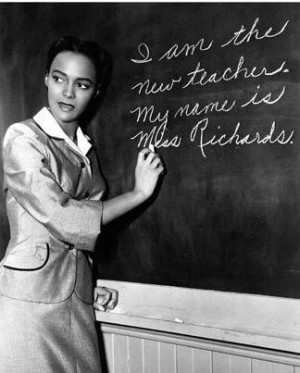 I am the
new teacher.
My name is
Miss Richards.